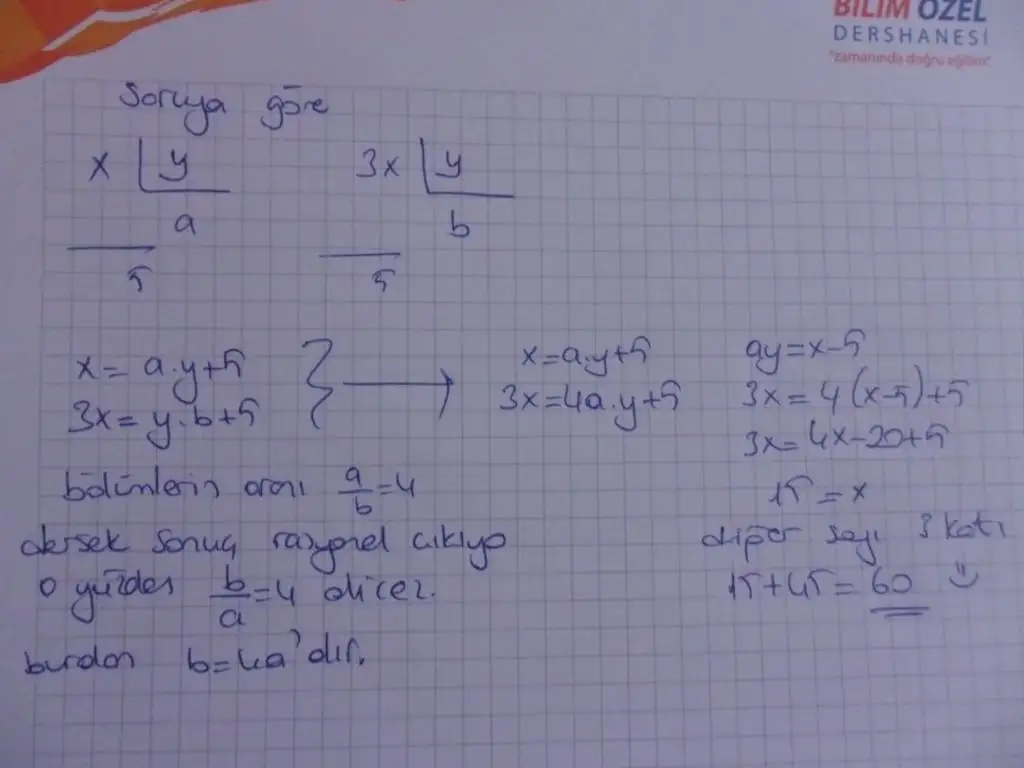 BİLİM ÖZEL
DERSHANESİ
"zamanında doğru eğitim"
Soruya göre
x y 3x y
a b
5 5
x = a.y+5
3x = y.b+5
x = a.y+5
3x = 4a.y+5
bölümlerin oranı a/b = 4
dersek sonuç rasyonel çıkıyo
o yüzden b/a = 4 dicez.
burdan b = 4a'dır.
ay = x-5
3x = 4(x-5)+5
3x = 4x-20+5
15 = x
diğer sayı 3 katı
15+45 = 60